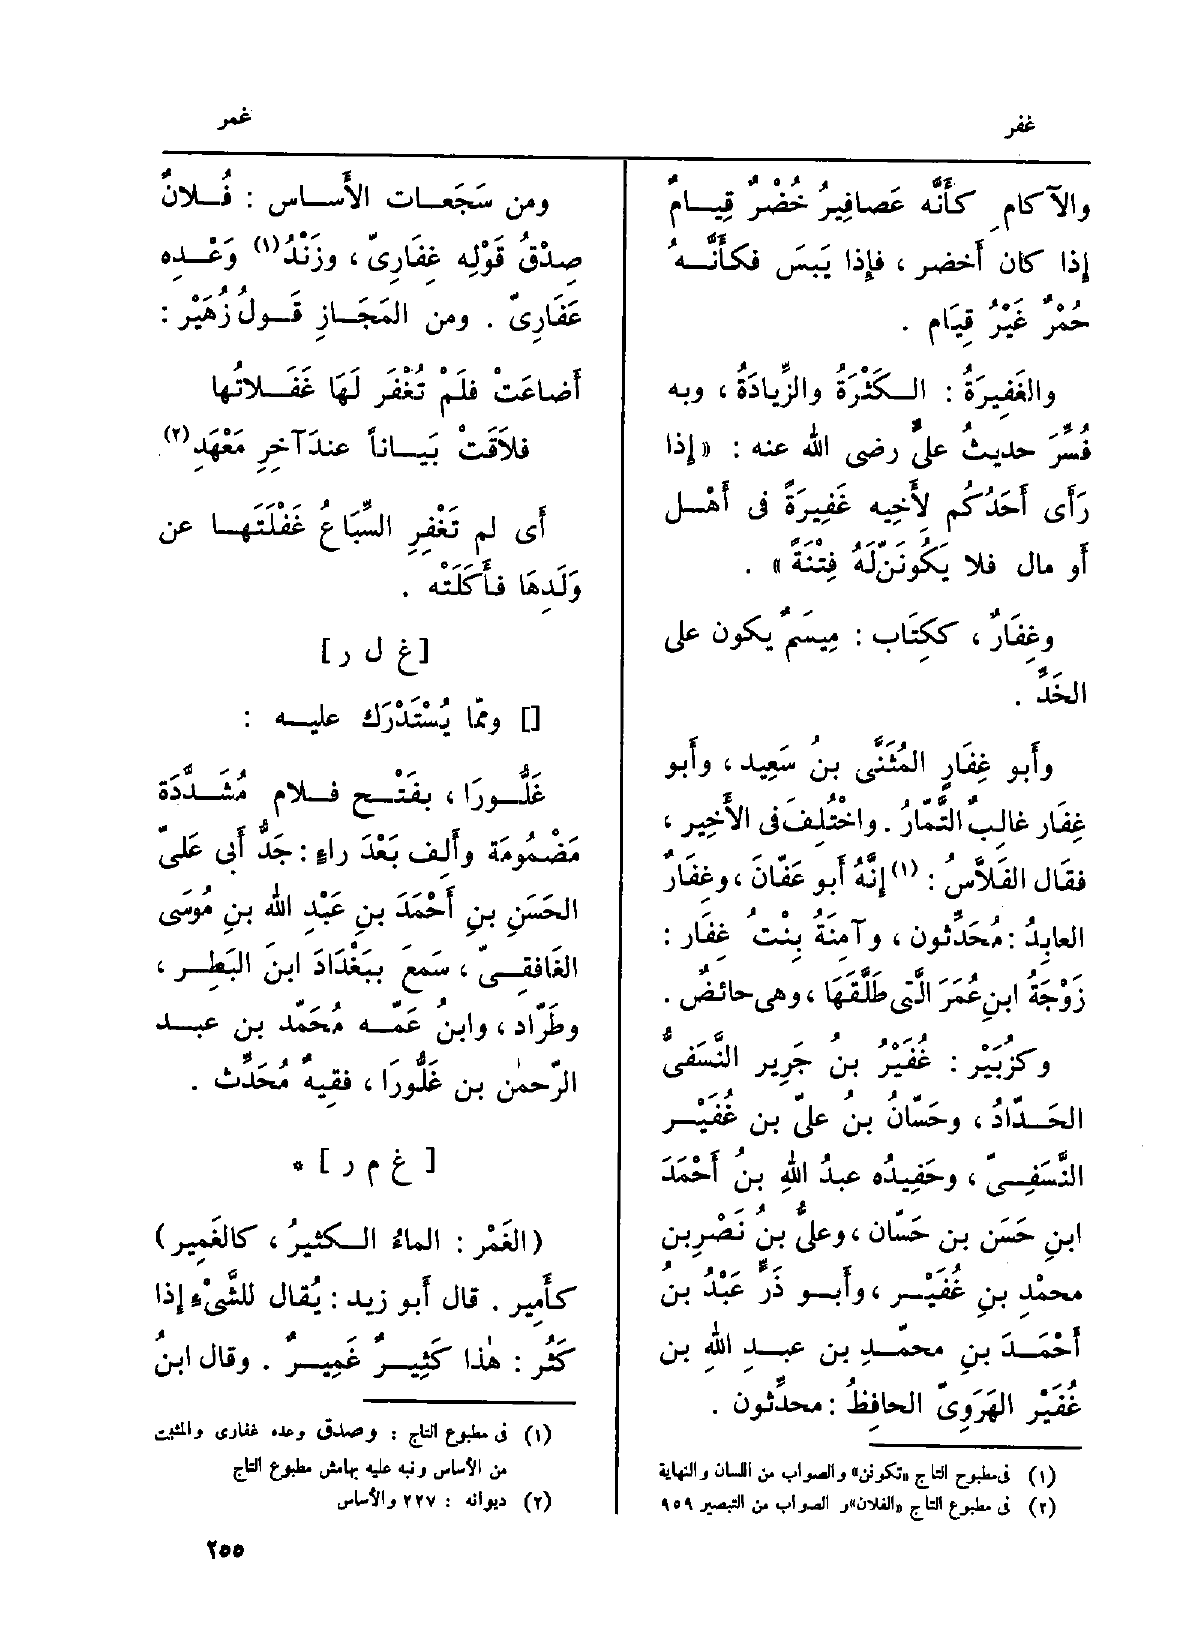 غفر
غمر
والآكامِ كأَنَّه عَصافِيرُ خُضْرٌ قِيــامٌ
إذا كان أَخضر ، فإِذا يَبَسَ فكأَنَّــهُ
حُمْرٌ غَيْرُ قِيَام .
والغَفِيرَةُ : الـكَثْرَةُ والزِّيادَةُ ، وبه
فُسِّرَ حديثُ علىٍّ رضى الله عنه : «إذا
رَأَى أَحَدُكُم لِأَخِيه غَفِيرَةً فى أَهْـل
أو مال فلا يَكُونَنّ لَهُ فِتْنَةً » .
وغِفَارٌ ، ككِتَاب : مِيسَمٌ يكون على
الخَدِّ .
وأَبو غِفَارٍ المُثَنَّى بنُ سَعِيد ، وأَبو
غِفَار غالِبٌ التَّمّارُ . واخْتُلِفَ فى الأَخِير ،
فقال الفَلاَّسُ : (١) إِنَّهُ أَبو عَفّانَ ، وغِفَارٌ
العابِدُ : مُحَدِّثون ، وآمِنَةُ بِنْتُ غِفَار :
زَوْجَةُ ابنِ عُمَرَ الَّتى طَلَّقَهَا ، وهى حائضٌ .
وكزُبَيْر : غُفَيْرُ بنُ جَرِير النَّسَفىُّ
الحَــدّادُ ، وحَسّانُ بنُ علىِّ بن غُفَيْــر
النَّسَفِــىّ ، وحَفِيدُه عبدُ اللهِ بنُ أَحْمَدَ
ابنِ حَسَن بن حَسّان ، وعلىُّ بنُ نَصْرِ بن
محمْدِ بنِ غُفَيْــر ، وأَبــو ذَرٍّ عَبْدُ بنُ
أَحْمَــدَ بنِ محمّــدِ بن عبــدِ اللهِ بن
غُفَيْر الهَرَوِىّ الحافِظُ : محدِّثون .
(١) فى مطبوح التاج «تكونن» والصواب من اللسان والنهاية
(٢) فى مطبوع التاج «الفلان» و الصواب من التبصير ٩٥٩
ومن سَجَعــات الأَسـاس : فُــلانٌ
صِدْقُ قَوْلِه غِفَارِىّ ، وزَنْدُ (١) وَعْــدِه
عَفَارِىّ . ومن المَجَــازِ قَــولُ زُهَيْر :
أَضاعَتْ فلَمْ تُغْفَر لَهَا غَفَــلاتُها
فلاَقَتْ بَيَــاناً عندَ آخِرِ مَعْهَدِ (٢)
أَى لم تَغْفِرِ السِّبَاعُ غَفْلَتَهــا عن
وَلَدِهَا فأَكَلَتْه .
[غ ل ر]
[] وممّا يُسْتَدْرَك عليــه :
غَلُّــورَا ، بفَتْــح فــلام مُشَــدَّدَة
مَضْمُومَة وأَلِف بَعْدَ راءٍ : جَدُّ أَبى عَلىّ
الحَسَنِ بنِ أَحْمَدَ بنِ عَبْدِ الله بنِ مُوسَى
الغَافقِــىّ ، سَمَعَ ببَغْدَادَ ابنَ البَطِــر ،
وطَرّاد ، وابنُ عَمّــه مُحَمّد بن عبــد
الرّحمٰن بن غَلُّورَا ، فقِيهٌ مُحَدِّث .
[ غ م ر ] *
(الغَمْر : الماءُ الــكثِيرُ ، كالغَمِير)
كأَمِير . قال أَبو زيد : يُقال للشَّىْءِ إذا
كَثُر : هٰذا كَثِيــرٌ غَمِيــرٌ . وقال ابنُ
(١) فى مطبوع التاج : وصدق وعده غفارى والمثبت
من الأساس ونبه عليه بهامش مطبوع التاج
(٢) ديوانه : ٢٢٧ والأساس
٢٥٥